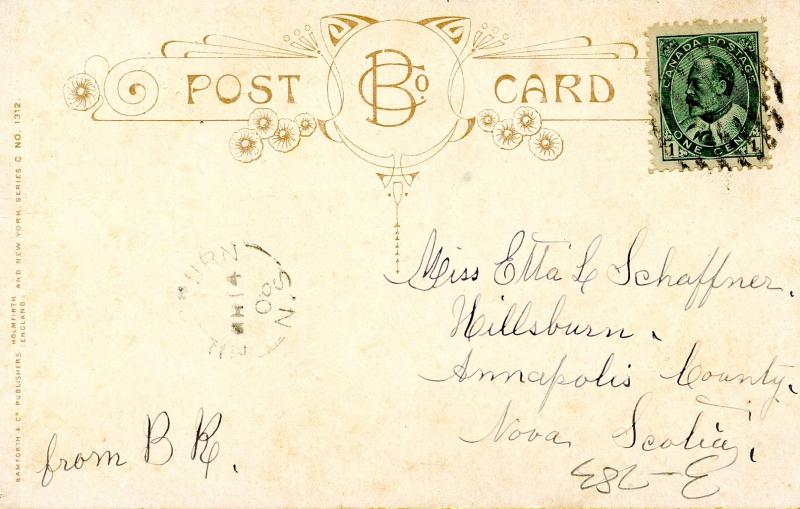 POST BCo. CARD
CANADA POSTAGE
ONE CENT
1 1
BAMFORTH & Co PUBLISHERS HOLMFIRTH (ENGLAND) AND NEW YORK. SERIES C NO. 1312.
URN
14
08
N.S.
Miss Etta L Schaffner.
Hillsburn.
Annapolis County.
Nova Scotia.
from B R.